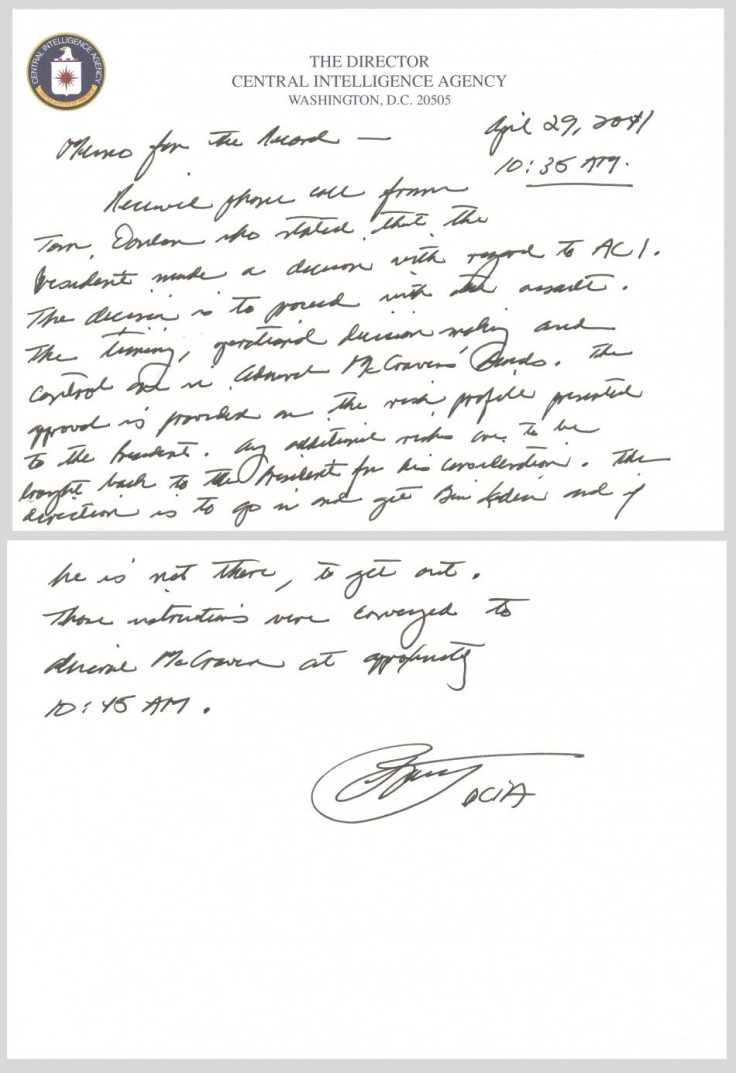 CENTRAL INTELLIGENCE AGENCY
UNITED STATES OF AMERICA
THE DIRECTOR
CENTRAL INTELLIGENCE AGENCY
WASHINGTON, D.C. 20505
Memo for the Record —
April 29, 2011
10:35 AM.
Received phone call from
Tom Donilon who stated that the
President made a decision with regard to AC1.
The decision is to proceed with the assault.
The timing, operational decision making and
control are in Admiral McRaven's hands. The
approval is provided on the risk profile presented
to the President. Any additional risks are to be
brought back to the President for his consideration. The
direction is to go in and get Bin Laden and if
he is not there, to get out.
Those instructions were conveyed to
Admiral McRaven at approximately
10:45 AM.
DCIA